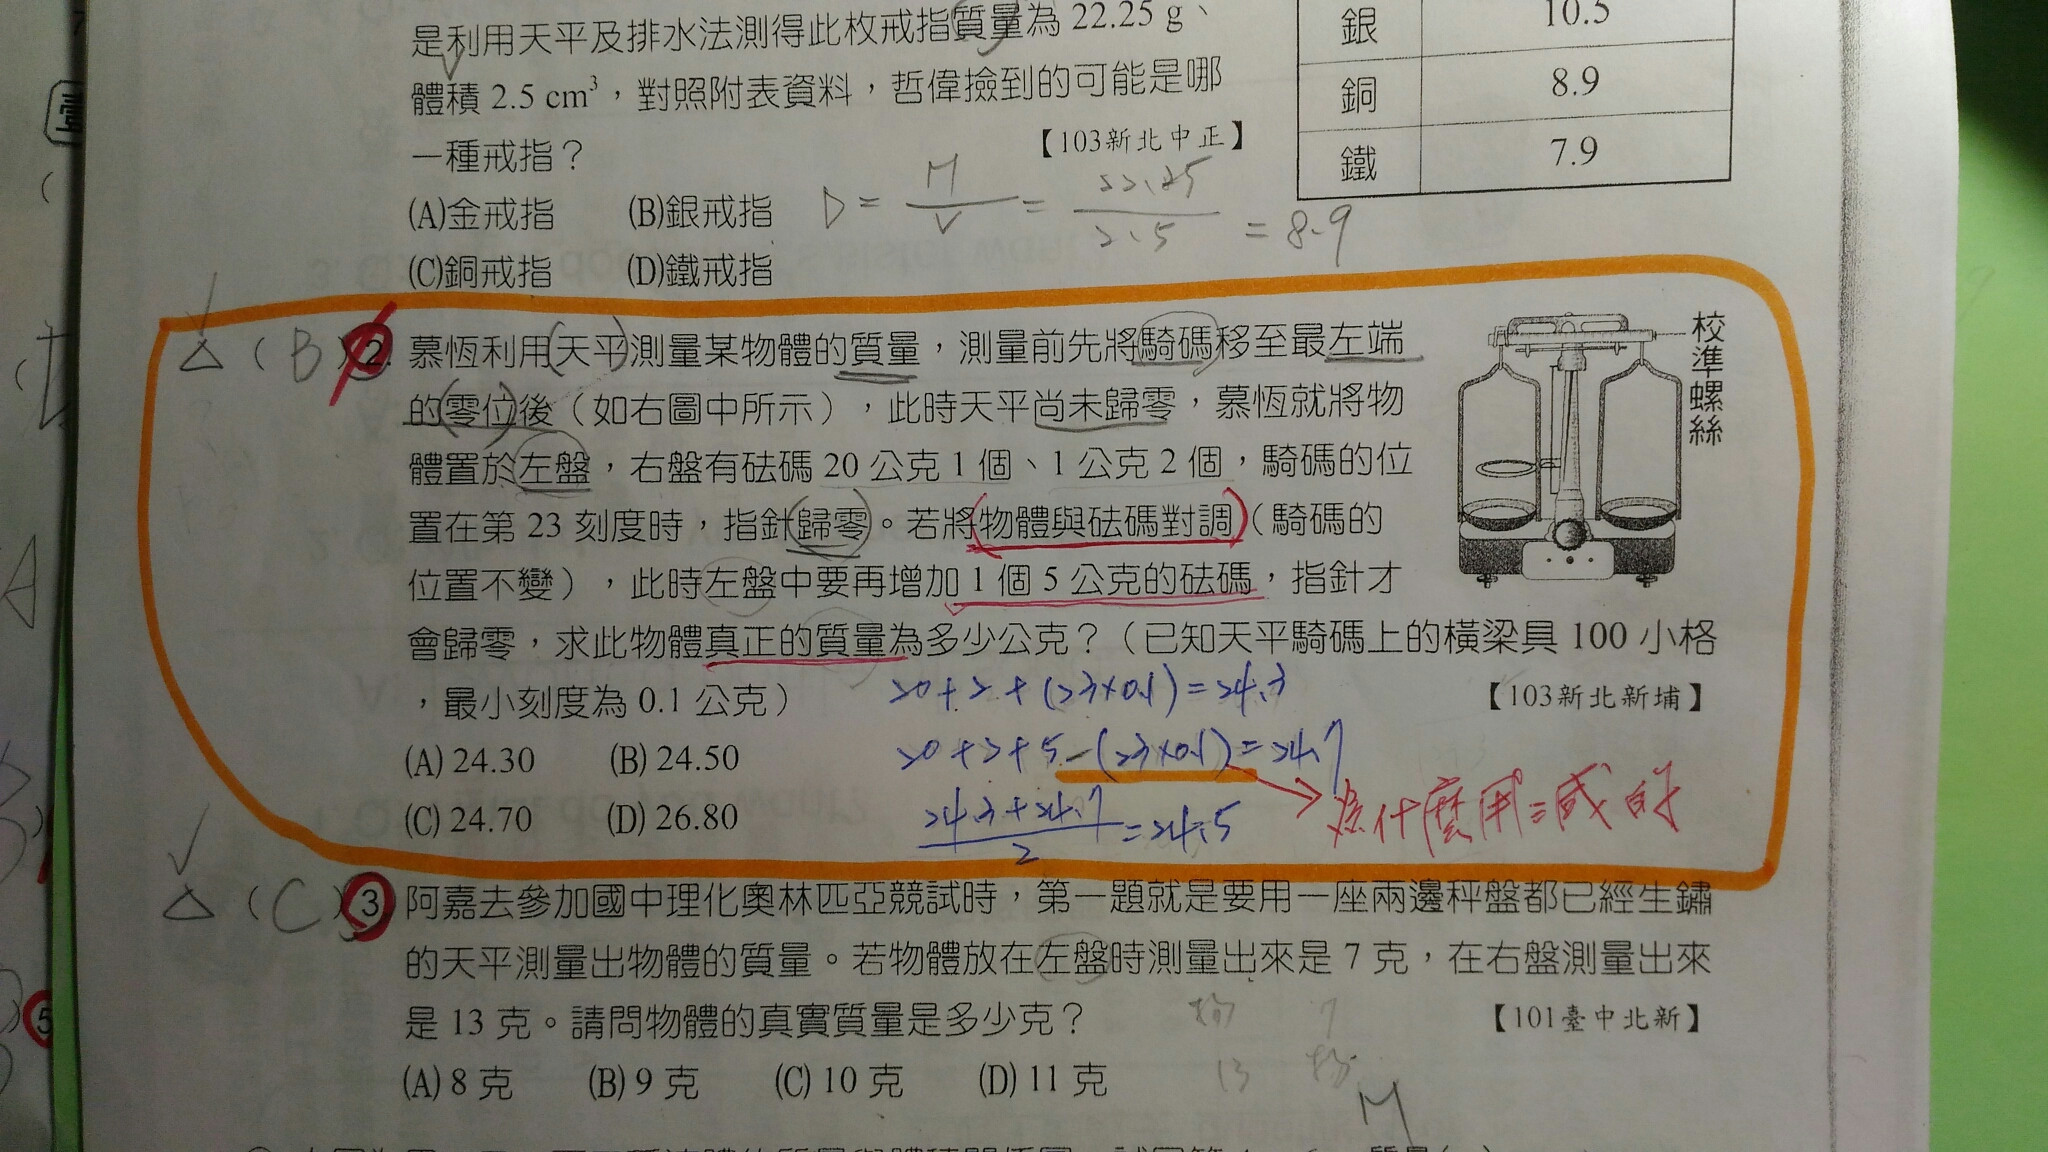 是利用天平及排水法測得此枚戒指質量為 22.25 g、
體積 2.5 cm³，對照附表資料，哲偉撿到的可能是哪
一種戒指？
【103新北中正】
(A)金戒指 (B)銀戒指
(C)銅戒指 (D)鐵戒指
銀 10.5
銅 8.9
鐵 7.9
D = M/V = 22.25/2.5 = 8.9
△ ( B ) 2. 慕恆利用天平測量某物體的質量，測量前先將騎碼移至最左端
的零位後（如右圖中所示），此時天平尚未歸零，慕恆就將物
體置於左盤，右盤有砝碼 20 公克 1 個、1 公克 2 個，騎碼的位
置在第 23 刻度時，指針歸零。若將物體與砝碼對調（騎碼的
位置不變），此時左盤中要再增加 1 個 5 公克的砝碼，指針才
會歸零，求此物體真正的質量為多少公克？（已知天平騎碼上的橫梁具 100 小格
，最小刻度為 0.1 公克）
【103新北新埔】
(A) 24.30 (B) 24.50
(C) 24.70 (D) 26.80
校準螺絲
20+2+(23×0.1)=24.3
20+2+5-(23×0.1)=24.7
24.3+24.7/2=24.5
為什麼用減的
△ ( C ) 3. 阿嘉去參加國中理化奧林匹亞競試時，第一題就是要用一座兩邊秤盤都已經生鏽
的天平測量出物體的質量。若物體放在左盤時測量出來是 7 克，在右盤測量出來
是 13 克。請問物體的真實質量是多少克？
【101臺中北新】
(A) 8 克 (B) 9 克 (C) 10 克 (D) 11 克
物 7
13 物
M